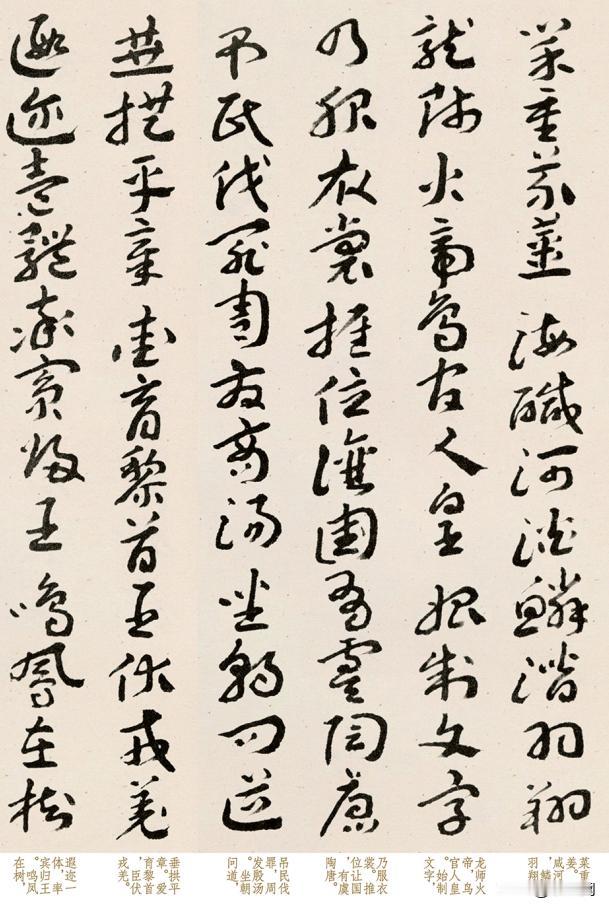 菜重芥薑海醎河淡鱗潛羽翔
龍師火帝鳥官人皇始制文字
乃服衣裳推位讓國有虞陶唐
弔民伐罪周發商湯坐朝問道
垂拱平章愛育黎首臣伏戎羌
遐迩壹體率賓歸王鳴鳳在樹
菜重
姜。
咸河
鳞
羽翔
龙师火
帝,鸟
官人皇
。始制
文字,
乃服衣
裳。推
位让国
,有虞
陶唐。
吊民伐
罪,周
发殷汤
。坐朝
问道,
垂拱平
章。爱
育黎首
,臣伏
戎羌。
遐迩一
体,率
宾归王
。鸣凤
在树,